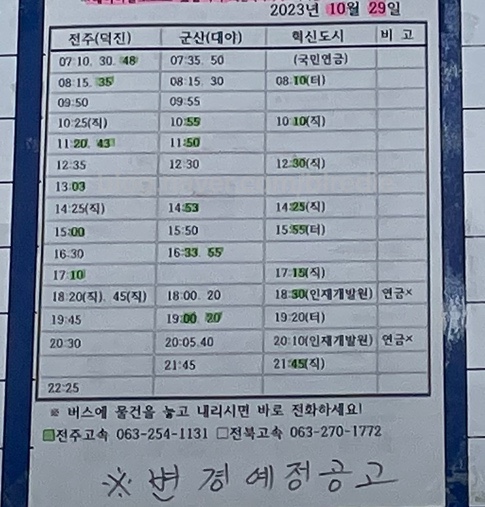 2023년 10월 29일
전주(덕진) 군산(대야) 혁신도시 비 고
07:10. 30. 48 07:35. 50 (국민연금)
08:15. 35 08:15. 30 08:10(터)
09:50 09:55
10:25(직) 10:55 10:10(직)
11:20. 43 11:50
12:35 12:30 12:30(직)
13:03
14:25(직) 14:53 14:25(직)
15:00 15:50 15:55(터)
16:30 16:33. 55
17:10 17:15(직)
18:20(직). 45(직) 18:00. 20 18:30(인재개발원) 연금×
19:45 19:00. 20 19:20(터)
20:30 20:05.40 20:10(인재개발원) 연금×
21:45 21:45(직)
22:25
※ 버스에 물건을 놓고 내리시면 바로 전화하세요!
■전주고속 063-254-1131 □전북고속 063-270-1772
※ 변경예정공고